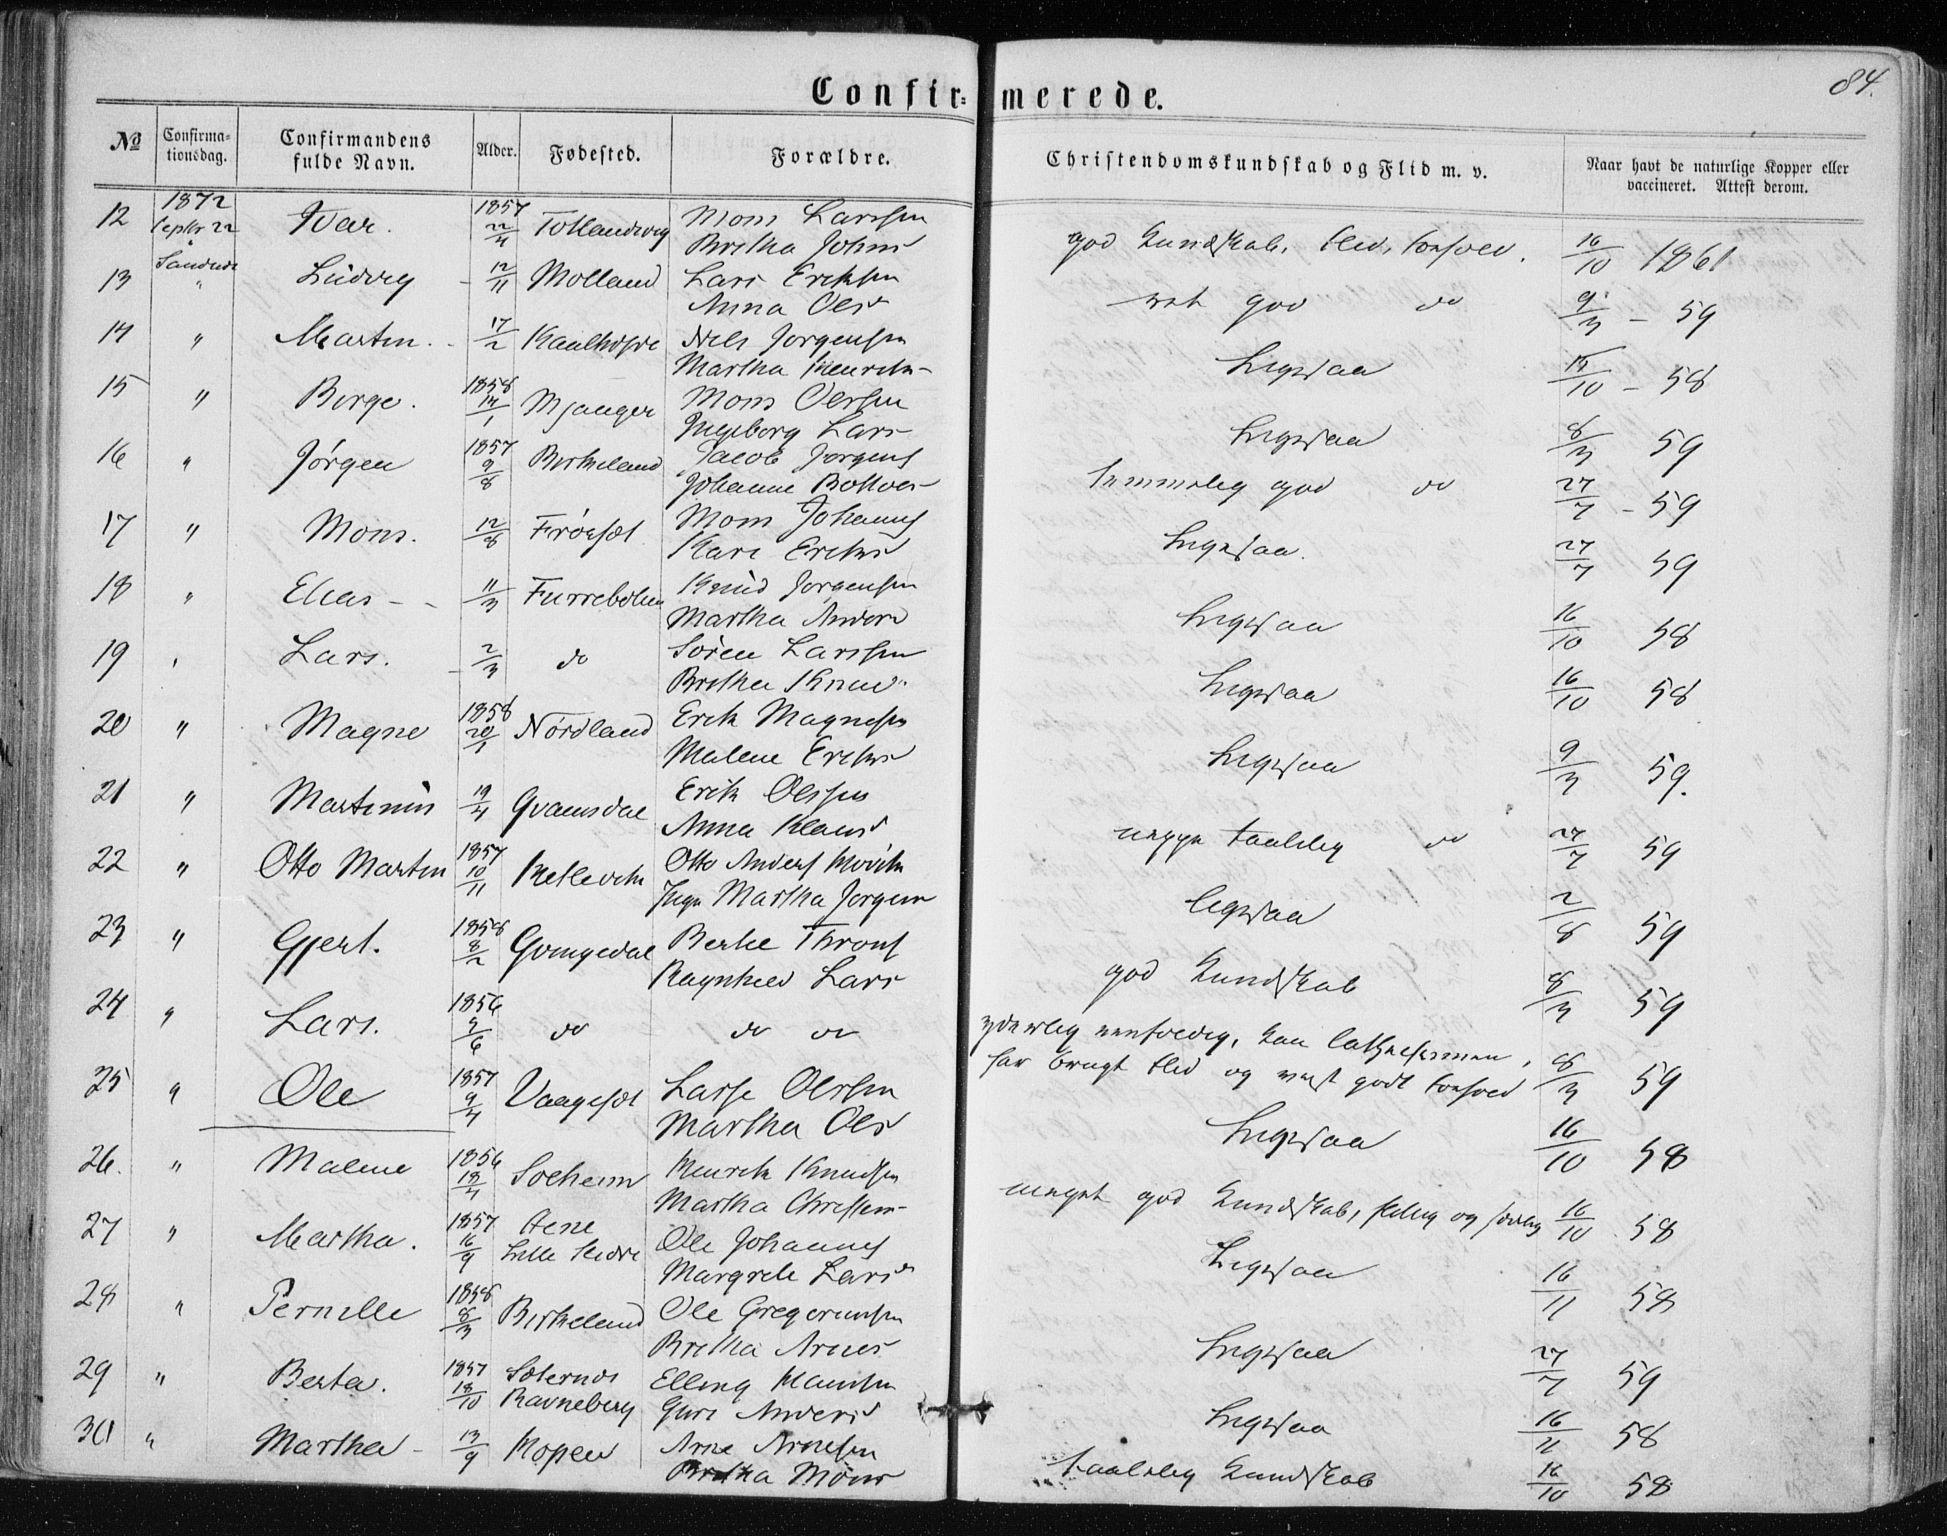 Confir= merede.
84.
№ Confirma=tionsdag. Confirmandens fulde Navn. Alder. Fødested. Forældre. Christendomskundskab og Flid m. v. Naar havt de naturlige Kopper eller vaccineret. Attest derom.
12 1872 Septbr 22 Ivar. 1857 22/4 Totlandsvig Mons Larssen
Britha Johns god Kundskab, Flid, Forhold. 16/10 1861
13 " Ludvig - 12/11 Molland Lars Eriksen
Anna Olsd ret god do 9/3 - 59
14 " Martin. - 17/2 Nils Jørgensen
Martha Henriks- Ligesaa 15/10 - 58
15 " Børge. 1858 14/1 Mjanger Mons Olssen
Ingeborg Lars- Ligesaa 8/3 59
16 " Jørgen 1857 9/8 Birkeland Jacob Jørgens
Johanne temmelig god do 27/7 - 59
17 " Mons. 12/8 Frøeset Mons Johanns
Kari Eriksd Ligesaa. 27/7 59
18 " Elias - - 11/3 Furrebølen Knud Jørgensen
Martha Anders Ligesaa 16/10 58
19 " Lars. - 2/3 do Søren Larssen
Britha Knud Ligesaa 16/10 58
20 " Magne 1858 20/1 Nordland Erik Magnesen
Malene Eriksd Ligesaa 9/3 59.
21 " Martinus 19/4 Qvamsdal Erik Olssen
Anna Klausd neppe taalelig do 27/7 59
22 " Otto Martin 1857 10/11 Otto Anders
Inga Martha Jørgens ligesaa 2/8 59
23 " Gjert. 1858 8/2 Qvingedal Berhe Throns
Ragnhild Lars god Kundskab 8/3 59
24 " Lars. 1856 9/6 do do do yderlig eenfoldig, kan
har brugt Flid og viist godt Forhold 8/3 59
25 " Ole 1857 9/4 Vaageset Lasse Olssen
Martha Olsd Ligesaa 16/10 58
26. " Malene 1856 19/4 Solheim Henrik Knudsen
Martha Christens- meget god Kundskab, flittig og sædelig 16/10 58
27 " Martha. 1857 16/9 Lille Ole Johannes
Margrete Larsd Ligesaa 16/11 58
28 " Pernille 1858 8/3 Birkeland Ole Gregoriussen
Britha Arnes Ligesaa 27/7 59
29 " Berta. 1857 18/10 Sæternes Ravneberg Elling Hansen
Guri Andersd Ligesaa 16/11 58
30 " Martha - 13/9 Hopen Arne Arnesen
Britha Mons taalelig Kundskab 16/10 58